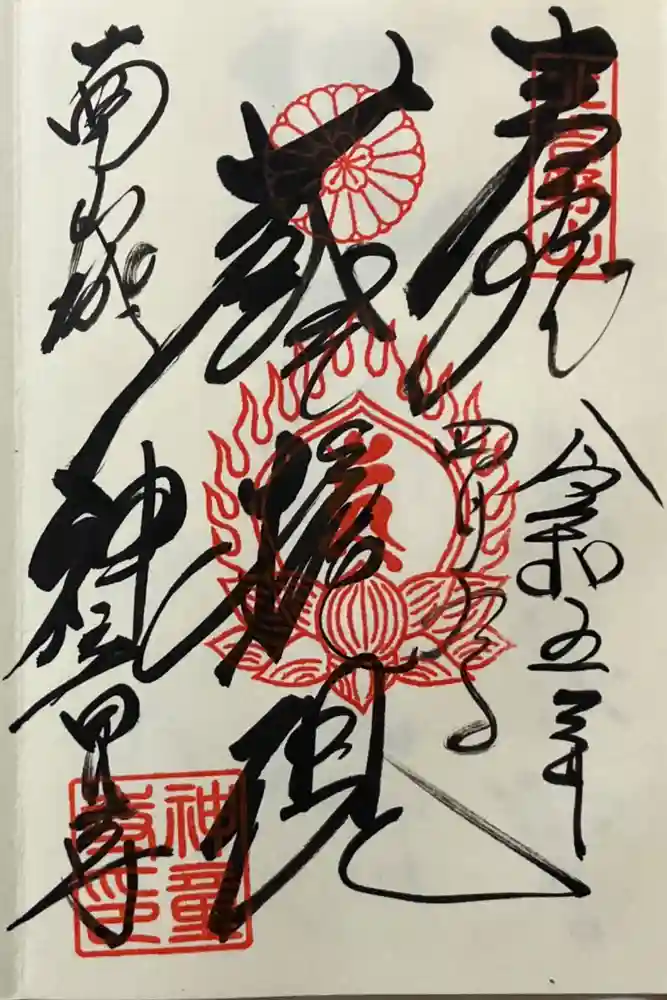 奉拝
北吉野山
令和五年
四月
蔵王権現
南山城
神童寺
神童